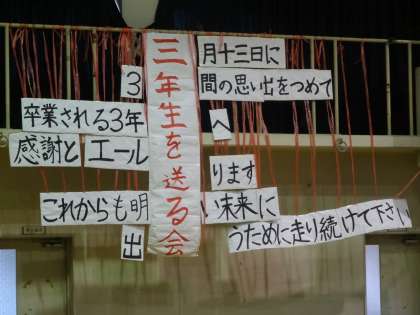 三月十三日に
3年間の思い出をつめて
卒業される3年生へ
感謝とエールを
送ります
これからも明るい未来に
出会うために走り続けて下さい